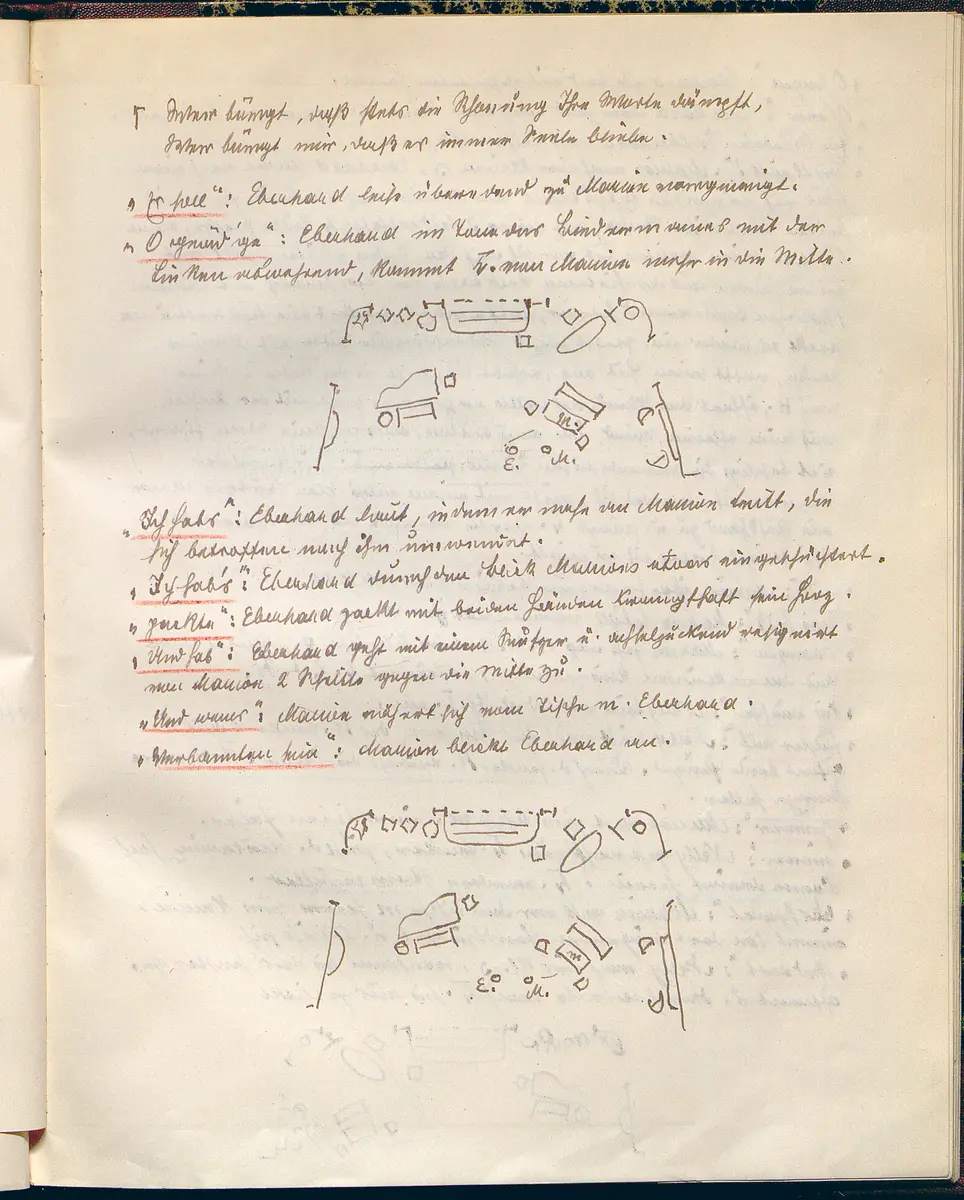 Wer bürgt, daß stets die Schonung Ihre Worte dämpft,
Wer bürgt mir, daß es immer Seele bliebe.
„Er soll“: Eberhard leise überredend zu Marion vorgeneigt.
„O gnäd'ge“: Eberhard im Tone des Biedermannes mit der
Linken abwehrend, kommt v. von Marion mehr in die Mitte.
m.
E. M.
„Ich habs“: Eberhard laut, indem er nahe an Marion tritt, die
sich betroffen nach ihm umwendet.
„Ich hab's“: Eberhard durch den Blick Marions etwas eingeschüchtert.
„packte“: Eberhard packt mit beiden Händen krampfhaft sein Herz.
„Und has“: Eberhard geht mit einem Seufzer u. achselzuckend resigniert
von Marion 2 Schritte gegen die Mitte zu.
„Und wenns“: Marion nähert sich vom Tische m. Eberhard.
„Verbannten sein“: Marion blickt Eberhard an.
m
E. M.